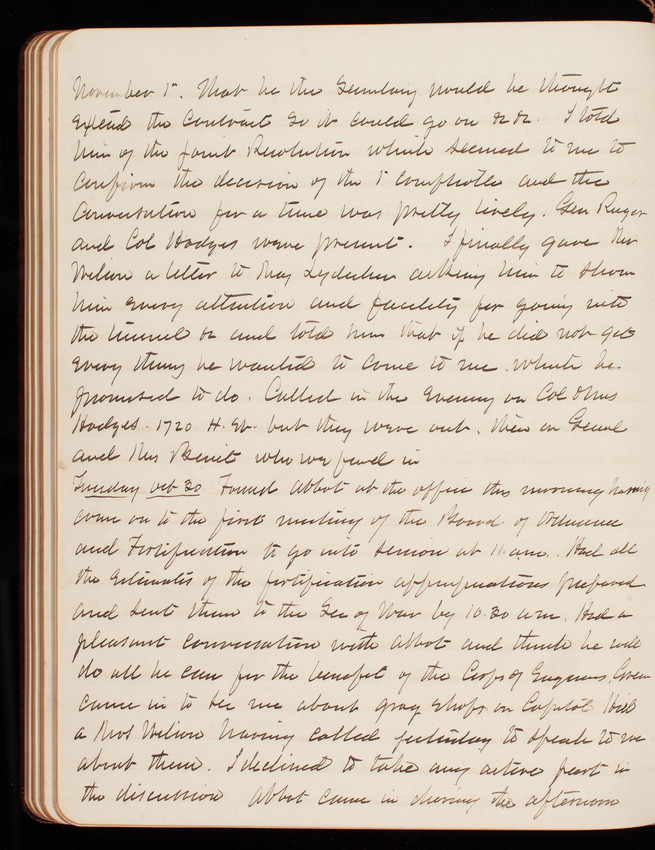 November 1st. That he the Secretary would he thought
extend the Contract so it could go on &c &c. I told
him of the Joint Resolution which seemed to me to
confirm the decision of the 1st Comptroller and the
Conversation for a time was pretty lively. Gen Ruger
and Col Hodges were present. I finally gave Mr
Wilson a letter to Maj Lydecker asking him to show
him every attention and facility for going into
the tunnel &c and told him that if he did not get
every thing he wanted to come to me which he
promised to do. Called in the evening on Col & Mrs
Hodges. 1720 H. St. but they were out. Then on General
and Mrs Benét who we found in
Tuesday Oct 30. Found Abbot at the office this morning having
come on to the first meeting of the Board of Ordnance
and Fortification to go into session at 11 a.m. Had all
the Estimates of the fortification appropriations prepared
and sent them to the Sec of War by 10.30 a.m. Had a
pleasant conversation with Abbot and think he will
do all he can for the benefit of the Corps of Engineers. Green
came in to see me about grog shops on Capitol Hill
a Mrs Wilson having called yesterday to speak to me
about them. I declined to take any active part in
the discussion Abbot came in during the afternoon